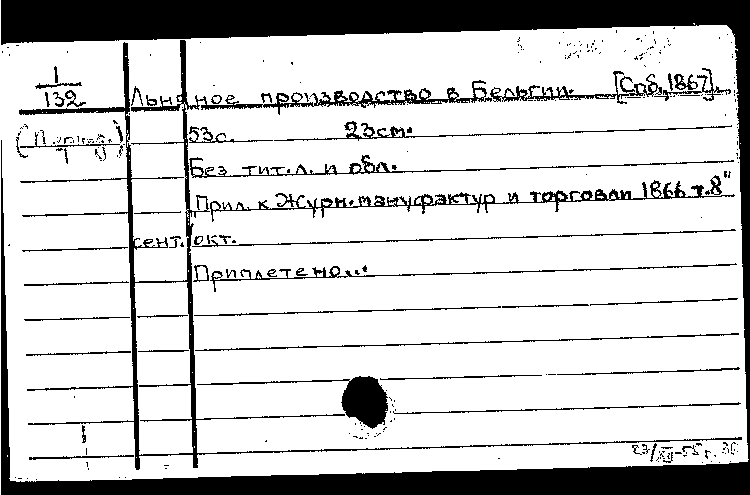 1
132 Льняное производство в Бельгии. [Спб, 1867].
53с. 23см.
Без тит. л. и обл.
Прил. к Журн. мануфактур и торговли 1866 т. 8"
сент. /окт.
Приплетено...
23/XII-55 г.